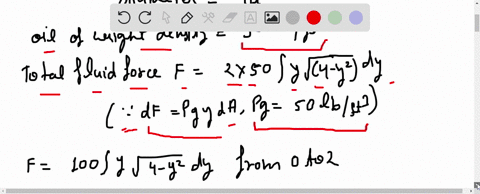 oil of weight density =
Total fluid force F = 2×50 ∫ y √(4-y²) dy
(∵ dF = ρg y dA, ρg = 50 lb/ft³)
F = 100 ∫ y √4-y² dy from 0 to 2